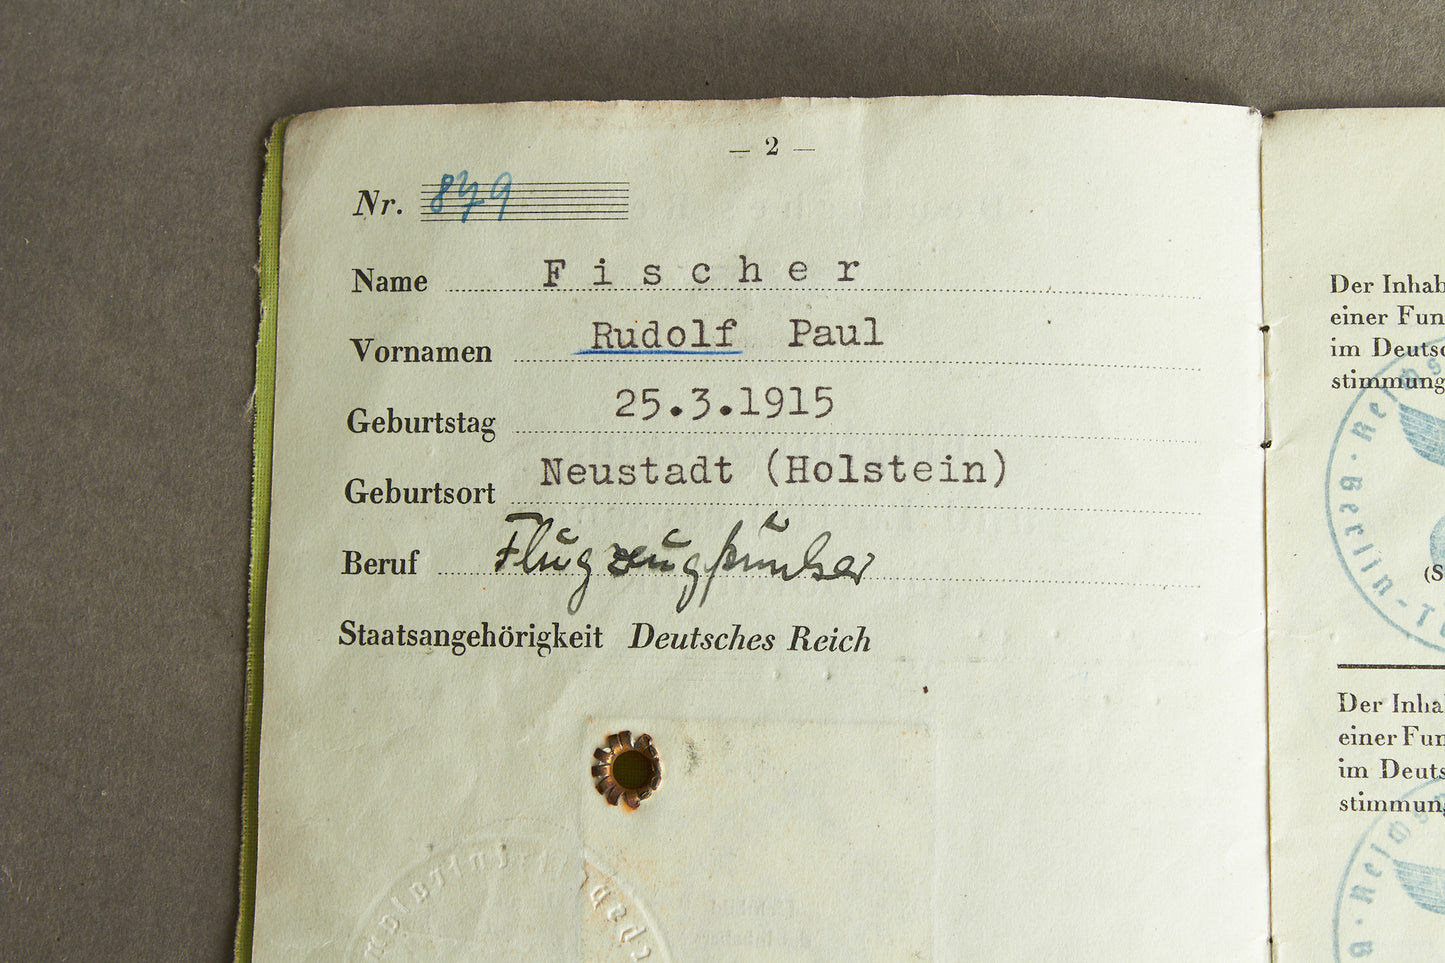 — 2 —
Nr. 879
Name Fischer
Vornamen Rudolf Paul
Geburtstag 25.3.1915
Geburtsort Neustadt (Holstein)
Beruf Flugzeugfunker
Staatsangehörigkeit Deutsches Reich
Der Inhab
einer Fun
im Deutsc
stimmung
Berlin-T
(S
Der Inha
einer Fun
im Deuts
stimmung